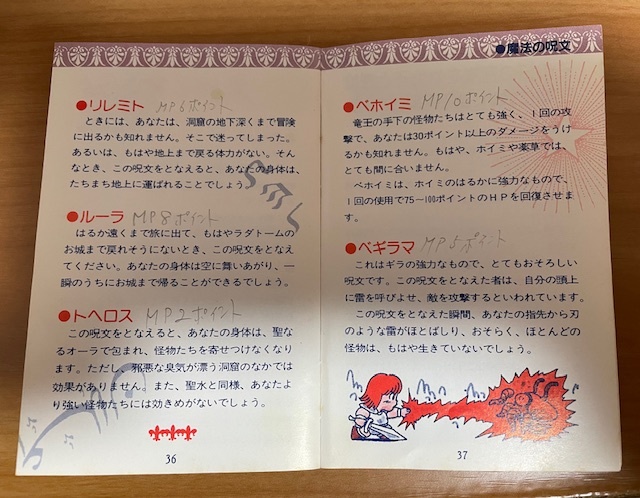 ●魔法の呪文
●リレミト MP6ポイント
ときには、あなたは、洞窟の地下深くまで冒険
に出るかも知れません。そこで迷ってしまった。
あるいは、もはや地上まで戻る体力がない。そん
なとき、この呪文をとなえると、あなたの身体は、
たちまち地上に運ばれることでしょう。
●ルーラ MP8ポイント
はるか遠くまで旅に出て、もはやラダトームの
お城まで戻れそうにないとき、この呪文をとなえ
てください。あなたの身体は空に舞いあがり、一
瞬のうちにお城まで帰ることができるでしょう。
●トヘロス MP2ポイント
この呪文をとなえると、あなたの身体は、聖な
るオーラで包まれ、怪物たちを寄せつけなくなり
ます。ただし、邪悪な臭気が漂う洞窟のなかでは
効果がありません。また、聖水と同様、あなたよ
り強い怪物たちには効きめがないでしょう。
36
●ベホイミ MP10ポイント
竜王の手下の怪物たちはとても強く、1回の攻
撃で、あなたは30ポイント以上のダメージをうけ
るかも知れません。もはや、ホイミや薬草では、
とても間に合いません。
ベホイミは、ホイミのはるかに強力なもので、
1回の使用で75〜100ポイントのHPを回復させま
す。
●ベギラマ MP5ポイント
これはギラの強力なもので、とてもおそろしい
呪文です。この呪文をとなえた者は、自分の頭上
に雷を呼びよせ、敵を攻撃するといわれています。
この呪文をとなえた瞬間、あなたの指先から刃
のような雷がほとばしり、おそらく、ほとんどの
怪物は、もはや生きていないでしょう。
37